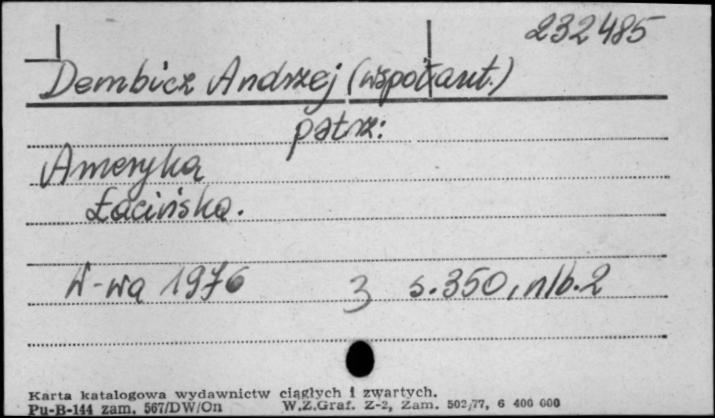 232485
Dembicz Andrzej (współaut.)
patrz:
Ameryka
Łacińska.
W-wa 1976 3 s. 350, nlb. 2
Karta katalogowa wydawnictw ciągłych i zwartych.
Pu-B-144 zam. 567/DW/On W.Z.Graf. Z-2, Zam. 502/77, 6 400 000